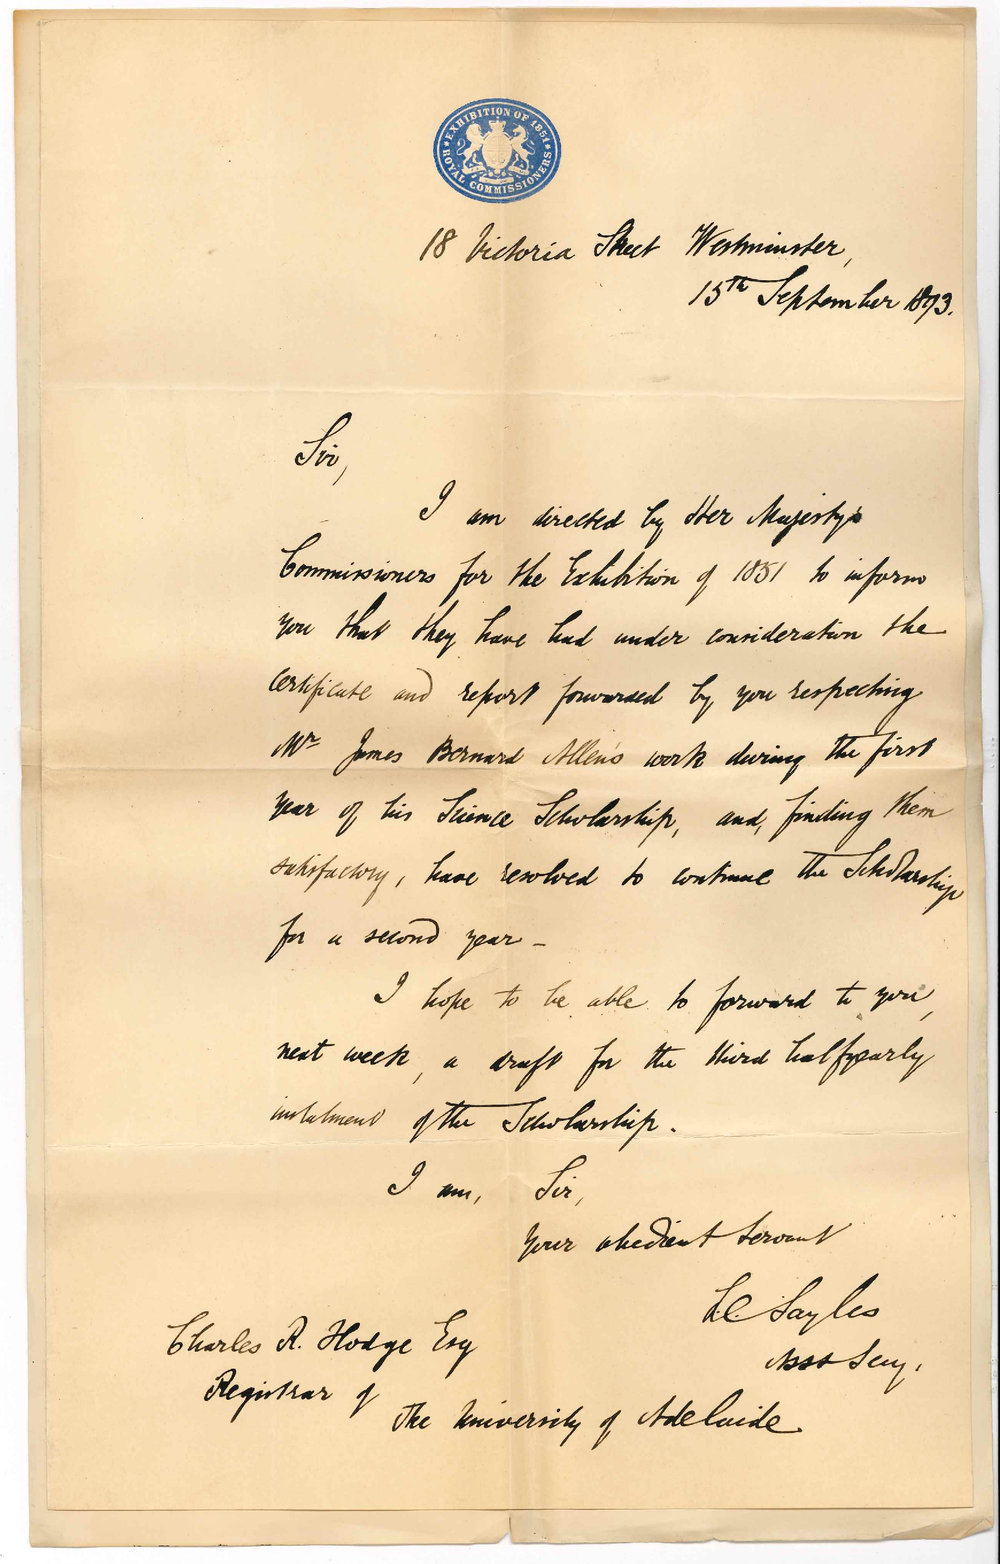 EXHIBITION OF 1851
ROYAL COMMISSIONERS
18 Victoria Street Westminster,
15th September 1893.
Sir,
I am directed by Her Majesty's
Commissioners for the Exhibition of 1851 to inform
you that they have had under consideration the
certificate and report forwarded by you respecting
Mr James Bernard Allen's work during the first
year of his Science Scholarship, and, finding them
satisfactory, have resolved to continue the Scholarship
for a second year -
I hope to be able to forward to you,
next week, a draft for the third halfyearly
instalment of the Scholarship.
I am, Sir,
Your obedient Servant
L.C. Sayles
Asst Secy.
Charles R. Hodge Esq
Registrar of
The University of Adelaide